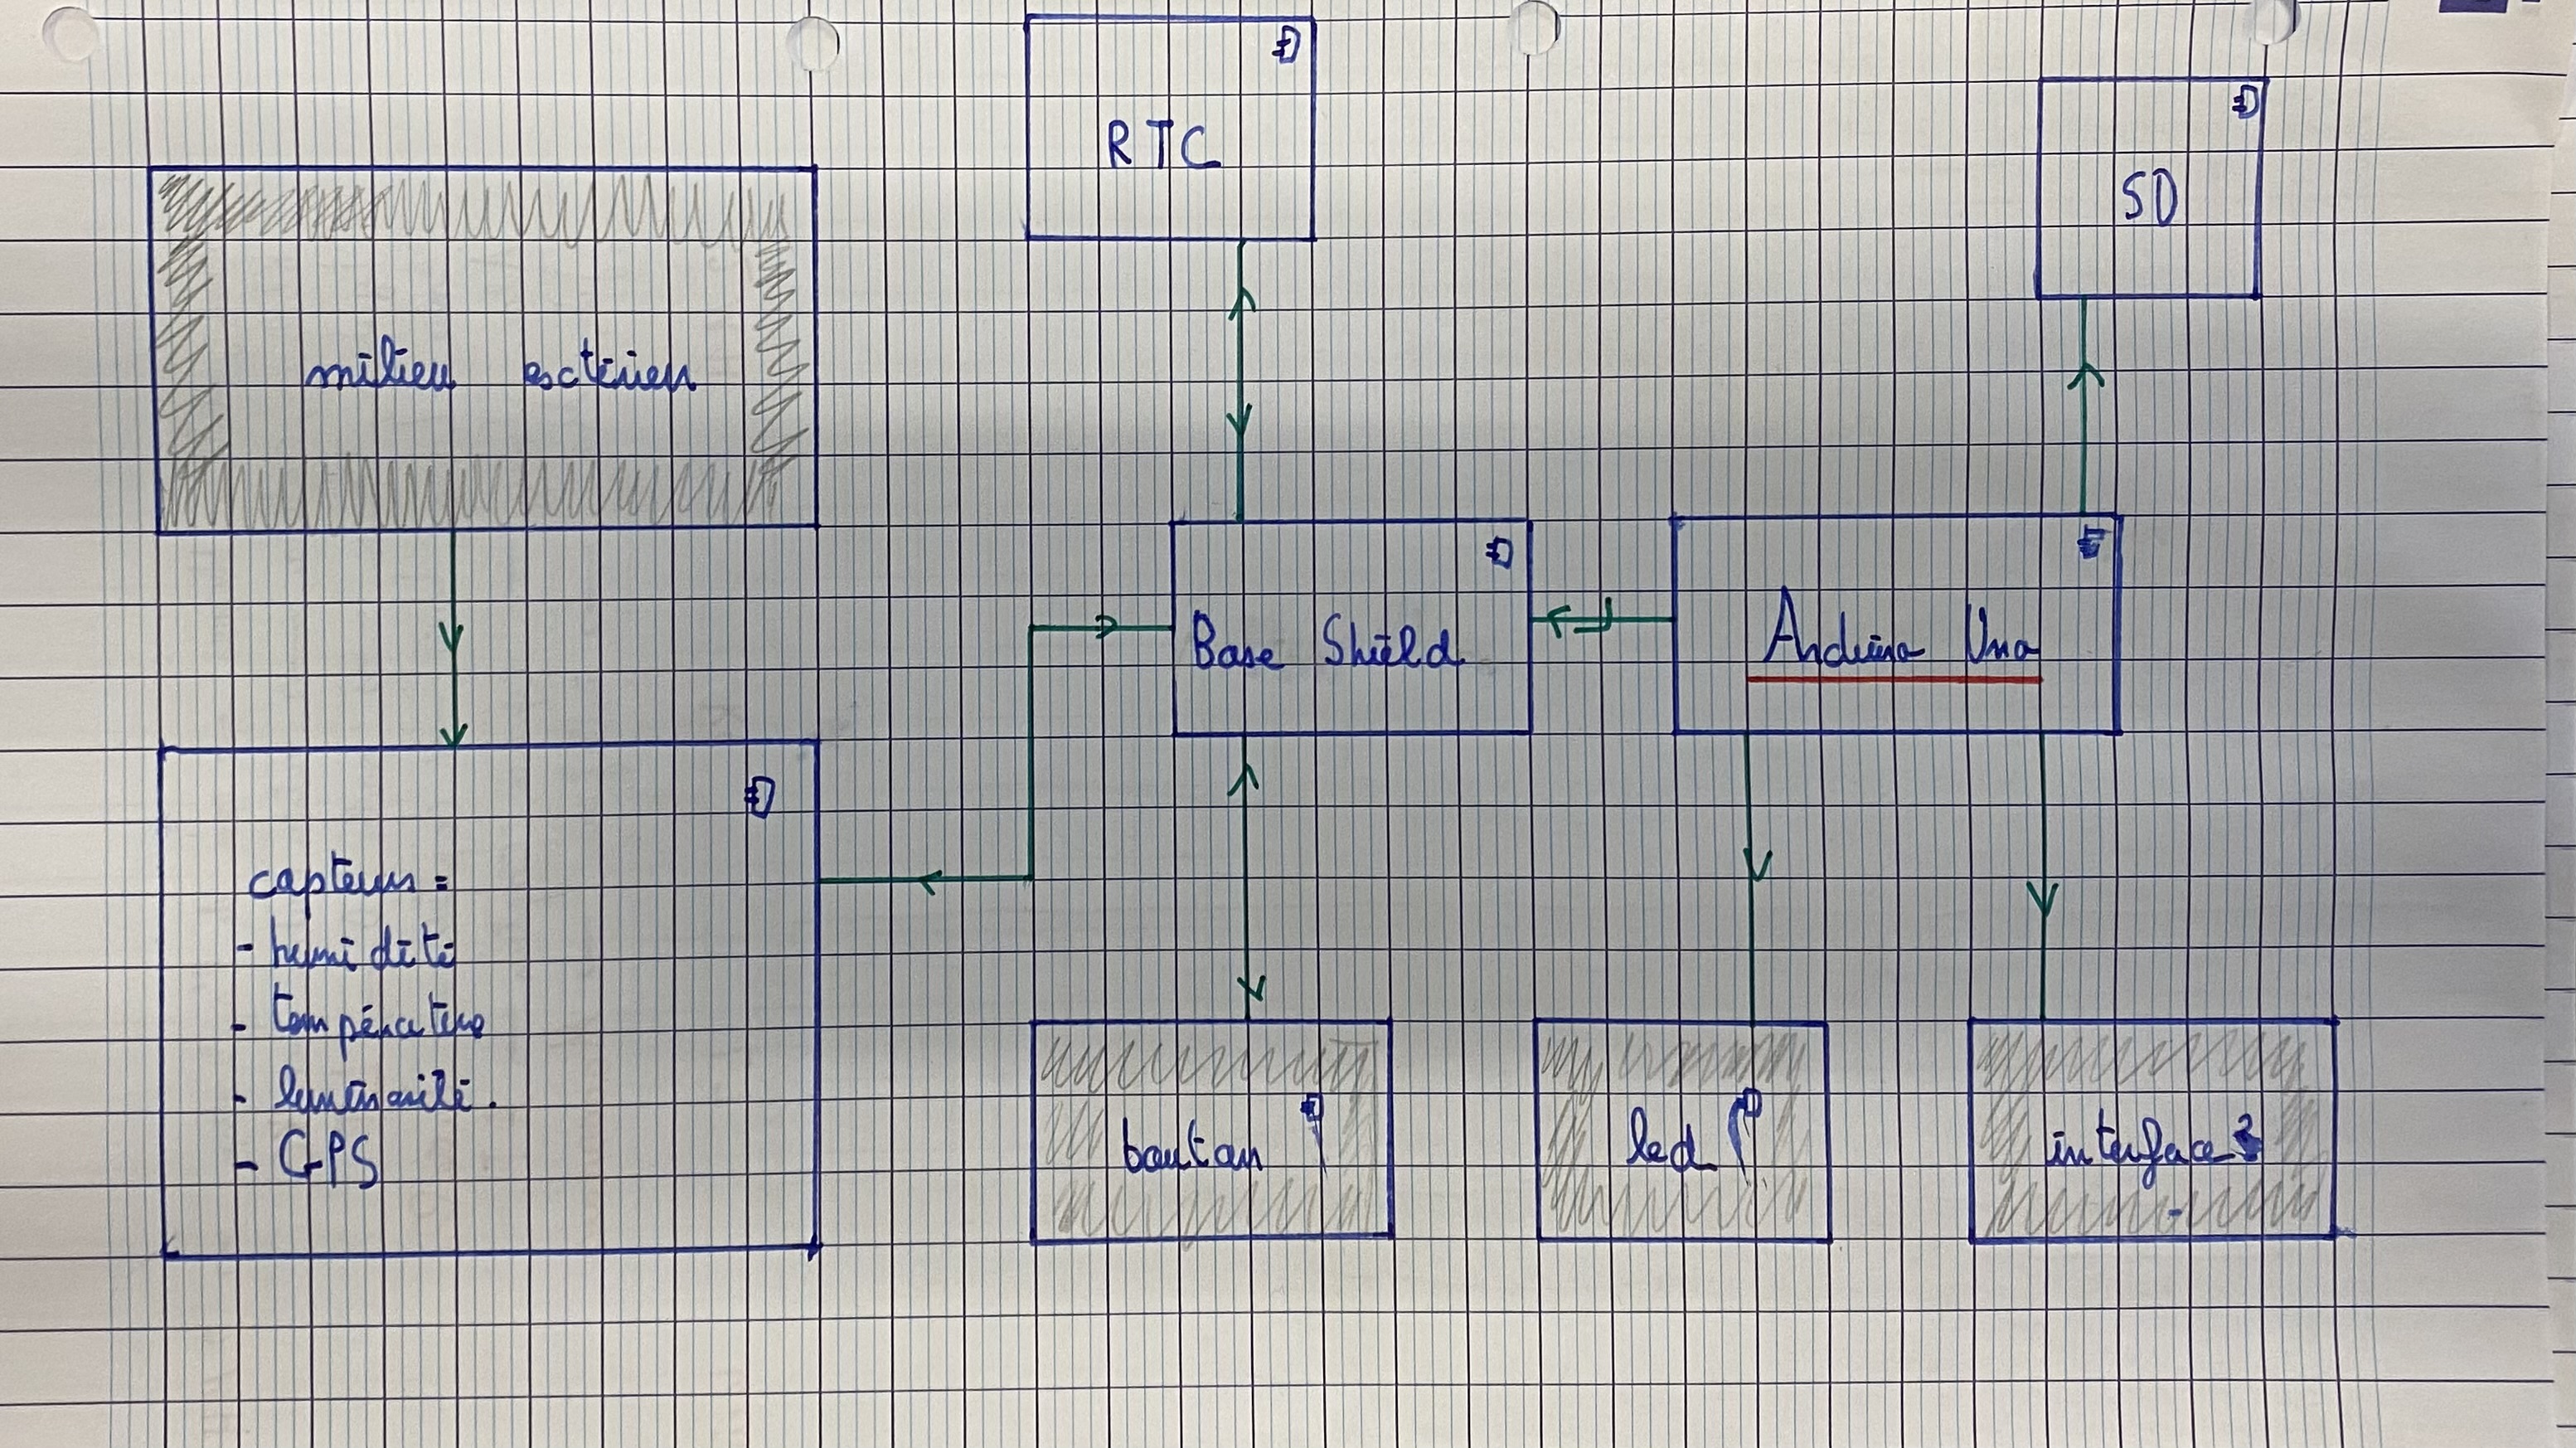 RTC
SD
milieu extérieur
Base Shield
Arduino Uno
capteurs :
- humidité
- température
- luminosité.
- GPS
bouton
led
interface